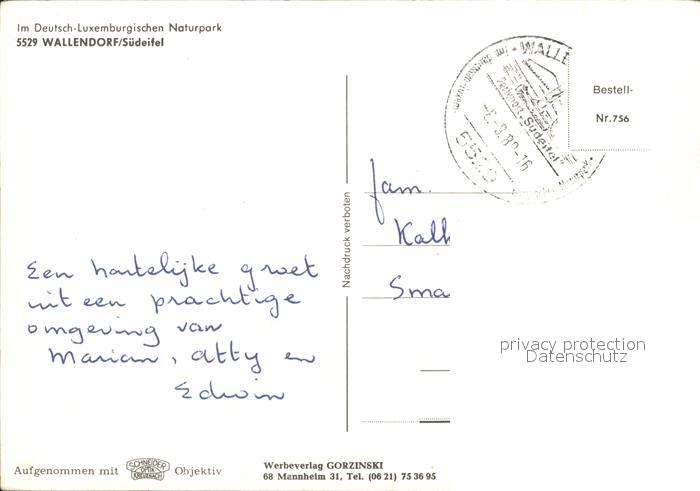 Im Deutsch-Luxemburgischen Naturpark
5529 WALLENDORF/Südeifel
WALLE
Südeifel
5529
-6.-8.82-16
Bestell-
Nr.756
Nachdruck verboten
fam.
Kall
Sma
Een hartelijke groet
uit een prachtige
omgeving van
Marian, Atty en
Edwin
privacy protection
Datenschutz
Aufgenommen mit SCHNEIDER OPTIK KREUZNACH Objektiv
Werbeverlag GORZINSKI
68 Mannheim 31, Tel. (06 21) 75 36 95